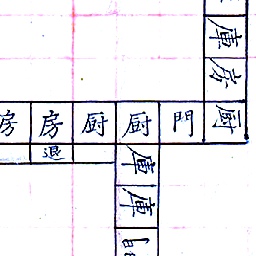 庫
房
房 房 厨 厨 門 厨
退
庫
庫